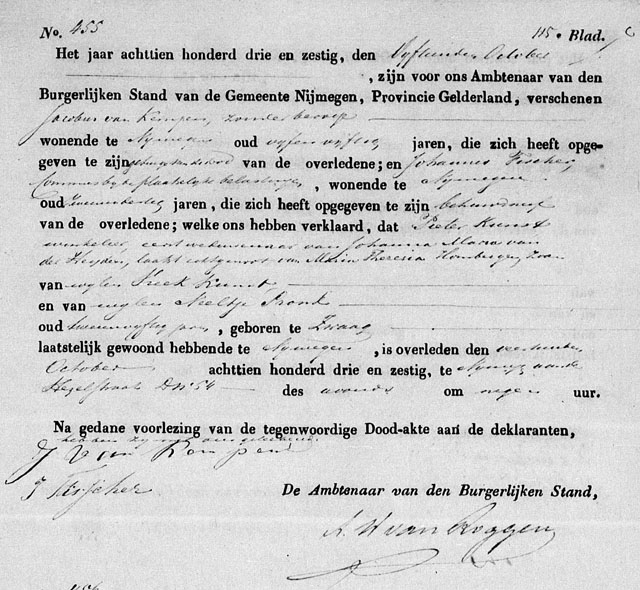 No. 455 115e Blad.
Het jaar achttien honderd drie en zestig, den vyftienden October
, zijn voor ons Ambtenaar van den
Burgerlijken Stand van de Gemeente Nijmegen, Provincie Gelderland, verschenen
Jacobus van Kempen, zonder beroep
wonende te Nymegen oud vyfenvyftig jaren, die zich heeft opge-
geven te zijn van de overledene; en Johannes Fischer,
Commies by de plaatselyke belastingen, wonende te Nymegen
oud jaren, die zich heeft opgegeven te zijn behuwdneef
van de overledene; welke ons hebben verklaard, dat Pieter Kunst
winkelier, eerst weduwnaar van Johanna Maria van
der Heyden, laatst echtgenoot van Maria Theresia Homberger, zoon
van wylen Kunst
en van wylen Neeltje
oud tweeenvyftig jaren, geboren te Zwaag
laatstelijk gewoond hebbende te Nymegen, is overleden den veertienden
October achttien honderd drie en zestig, te Nymegen aan de
Hezelstraat D No 54 des avonds om negen uur.
Na gedane voorlezing van de tegenwoordige Dood-akte aan de deklaranten,
hebben zy met ons geteekend.
J Van Kempen
J Fisscher
De Ambtenaar van den Burgerlijken Stand,
van Roggen
456